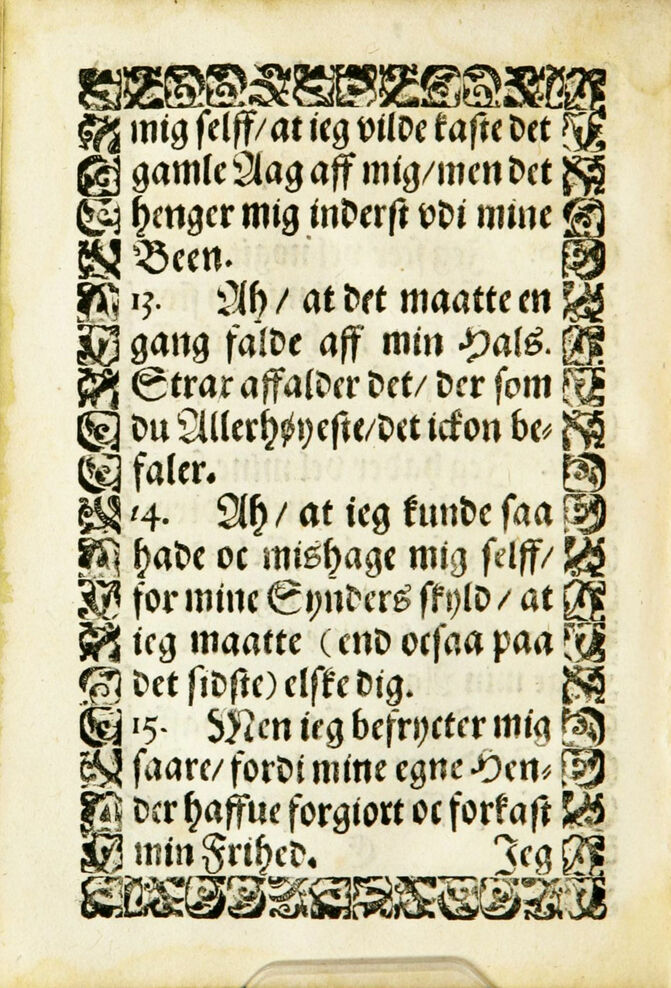 mig selff/ at ieg vilde kaste det
gamle Aag aff mig/ men det
henger mig inderst vdi mine
Been.
13. Ah / at det maatte en
gang falde aff min Hals.
Strax affalder det/ der som
du Allerhøyeste/ det ickon be⸗
faler.
14. Ah / at ieg kunde saa
hade oc mishage mig selff/
for mine Synders skyld / at
ieg maatte (end ocsaa paa
det sidste) elske dig.
15. Men ieg befrycter mig
saare/ fordi mine egne Hen⸗
der haffue forgiort oc forkast
min Frihed. Jeg